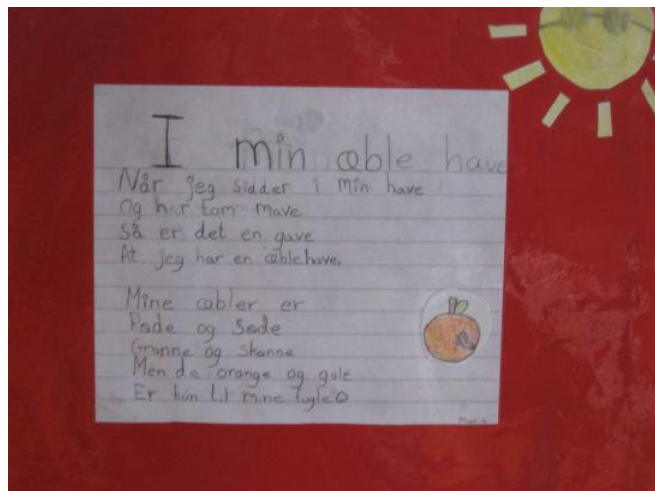 I min æble have
Når jeg sidder i min have
Og har tom mave
Så er det en gave
At jeg har en æblehave.
Mine æbler er
Røde og Søde
Grønne og skønne
Men de orange og gule
Er kun til mine fugle